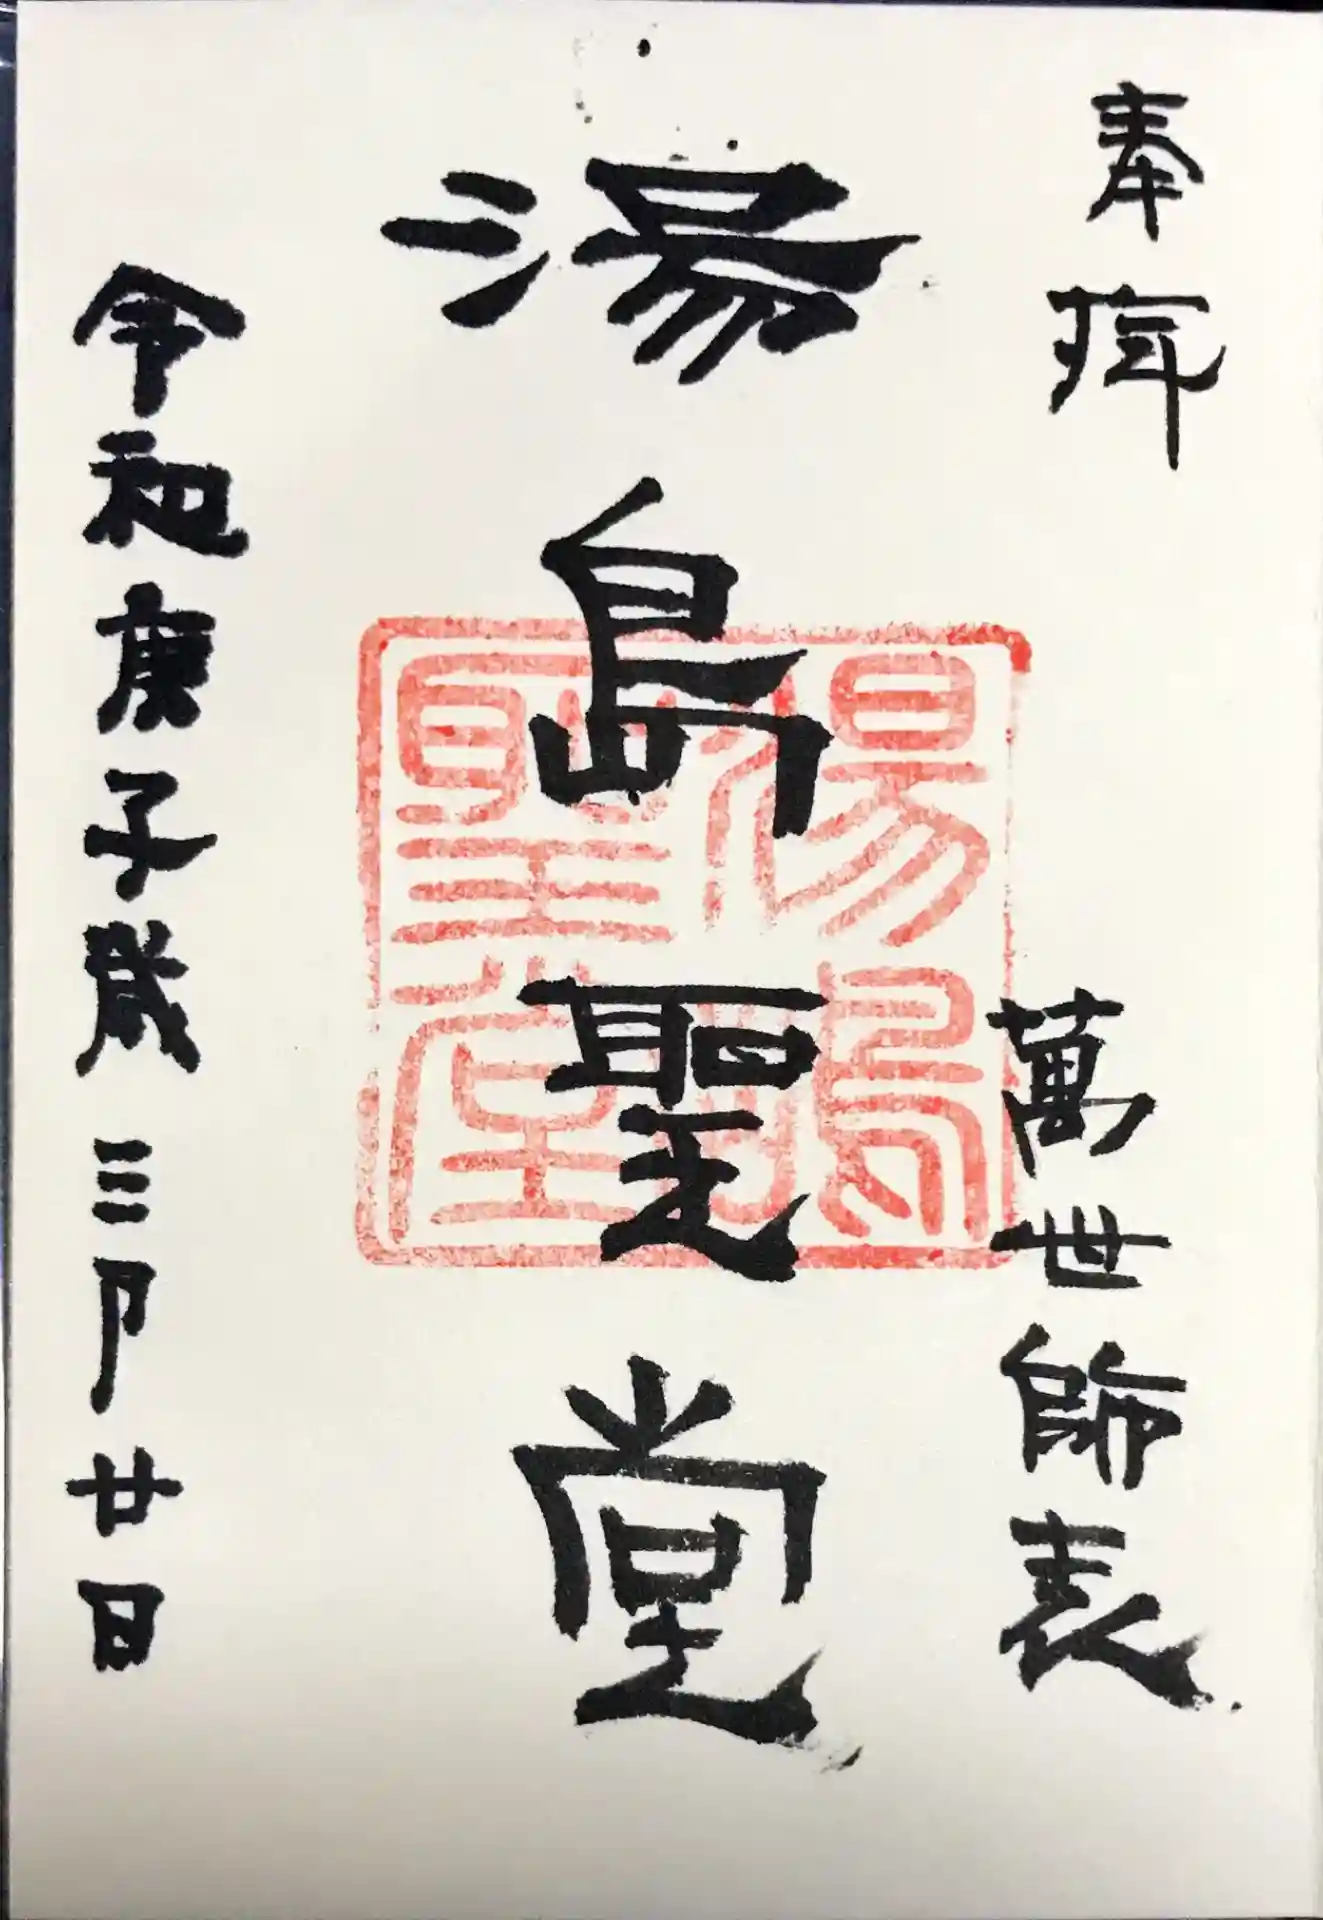 奉拝
萬世師表
湯島聖堂
湯島
聖堂
令和庚子歳三月廿日